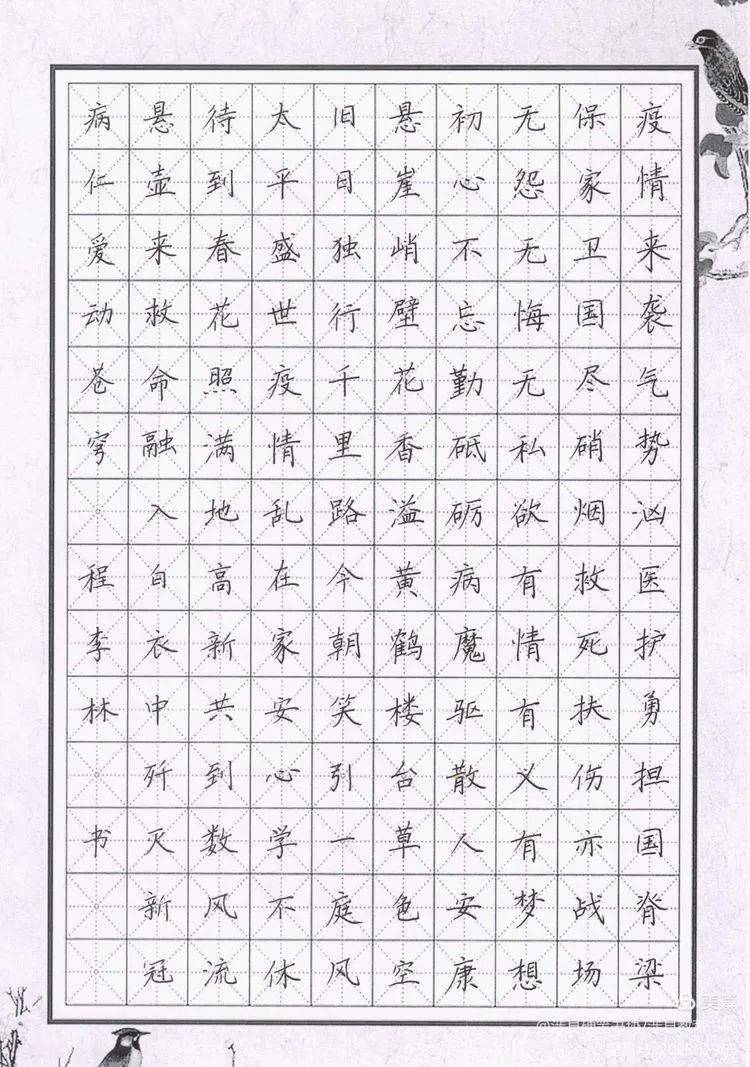 疫情来袭气势汹医护勇担国脊梁
保家卫国尽硝烟救死扶伤亦战场
无怨无悔无私欲有情有义有梦想
初心不忘勤砥砺病魔驱散人安康
悬崖峭壁花香溢黄鹤楼台草色空
旧日独行千里路今朝笑引一庭风
太平盛世疫情乱在家安心学不休
待到春花照满地高新共到数风流
悬壶来救命融入白衣中歼灭新冠
病仁爱动苍穹 程李林 书
美篇